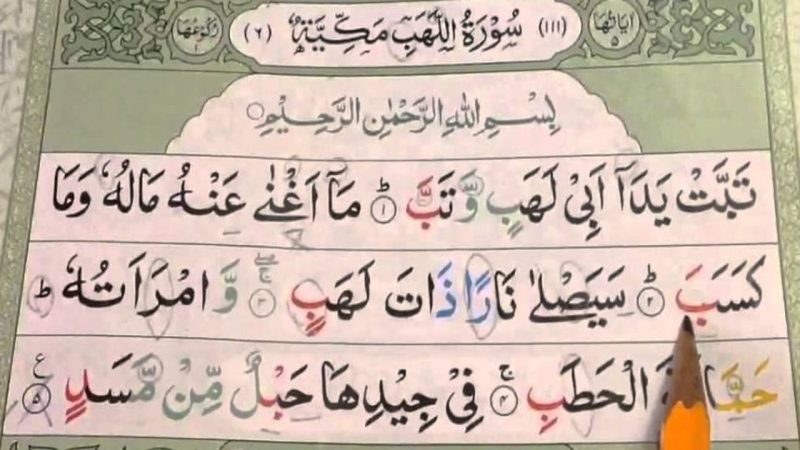 اٰیَاتُهَا ٥ (١١١) سُوْرَةُ اللَّهَبِ مَكِّیَّةٌ (٦) رُكُوْعُهَا ١
بِسْمِ اللّٰهِ الرَّحْمٰنِ الرَّحِیْمِ
تَبَّتْ یَدَاۤ اَبِیْ لَهَبٍ وَّ تَبَّ ؕ ١ مَاۤ اَغْنٰی عَنْهُ مَالُهٗ وَمَا
كَسَبَ ؕ ٢ سَیَصْلٰی نَارًا ذَاتَ لَهَبٍ ۚ ٣ وَّ امْرَاَتُهٗ ؕ
الْحَطَبِ ۚ ٤ فِیْ جِیْدِهَا حَبْلٌ مِّنْ مَّسَدٍ ٥ ع